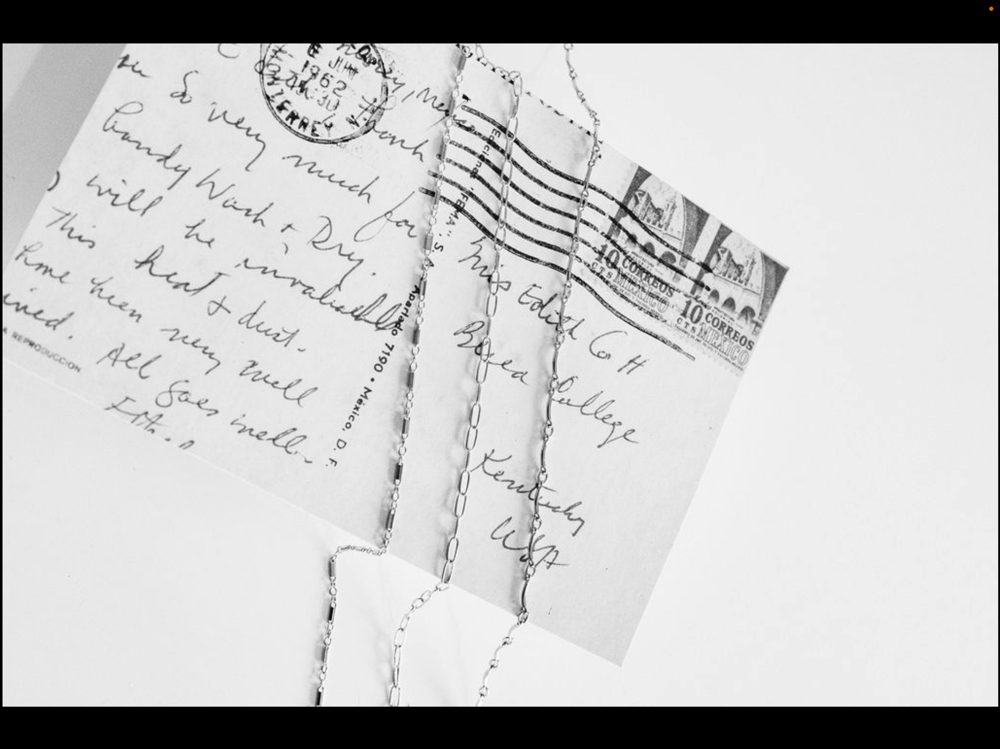 6 JUN
1962
MONTERREY
Thank
So very much for
Handy Wash + Dry.
will be invaluable
This heat & dust.
have been very well
All goes well.
REPRODUCCION
"FEMA" S. A.
Apartado 7190 • México, D. F.
10 CORREOS
CTS MEXICO
10 CORREOS
CTS MEXICO
Miss Edith
Berea College
Kentucky
USA